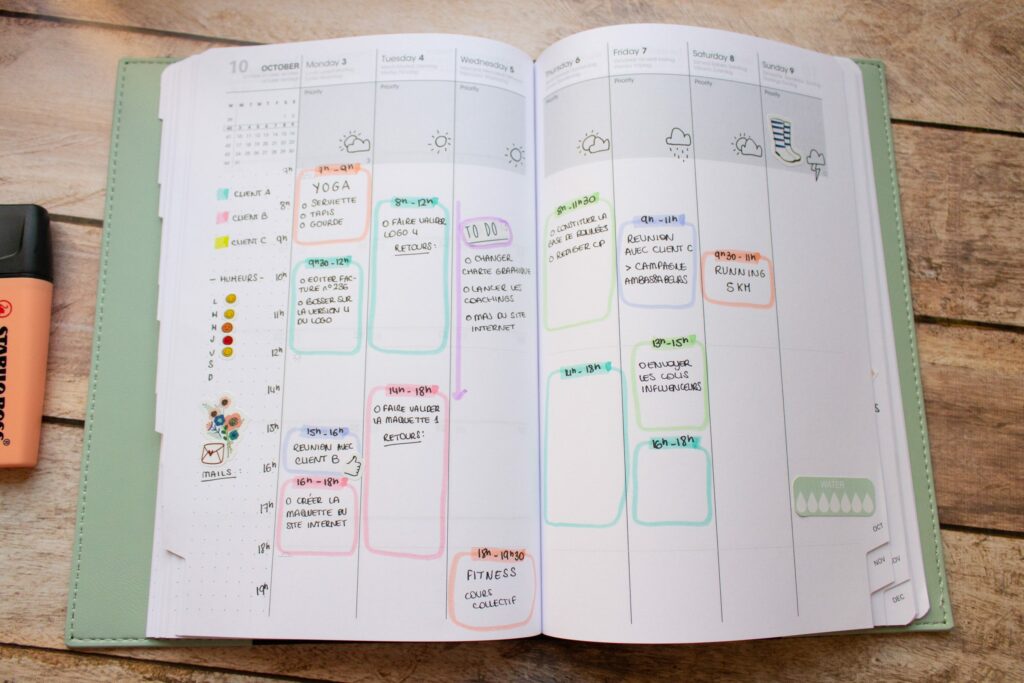 10 OCTOBER
7h
CLIENT A
8h
CLIENT B
CLIENT C
9h
- HUMEURS -
10h
L
M
M
J
V
S
D
11h
12h
14h
15h
16h
MAILS :
17h
18h
19h
Monday 3
Priority
7h - 9h
YOGA
O SERVIETTE
O TAPIS
O GOURDE
9h30 - 12h
O EDITER FAC-
TURE n° 236
O BOSSER SUR
LA VERSION 4
DU LOGO
15h - 16h
REUNION AVEC
CLIENT B
16h - 18h
O CRÉER LA
MAQUETTE DU
SITE INTERNET
Tuesday 4
Priority
8h - 12h
O FAIRE VALIDER
LOGO 4
RETOURS :
14h - 18h
O FAIRE VALIDER
LA MAQUETTE 1
RETOURS :
Wednesday 5
Priority
TO DO
O CHANGER
CHARTE GRAPHIQUE
O LANCER LES
COACHINGS
O MAJ DU SITE
INTERNET
18h - 19h30
FITNESS
COURS
COLLECTIF
Thursday 6
Priority
8h - 11h30
O CONSTITUER LA
BASE DE DONNÉES
O REDIGER CP
14h - 18h
Friday 7
Priority
9h - 11h
REUNION
AVEC CLIENT C
> CAMPAGNE
AMBASSADEURS
13h - 15h
O ENVOYER
LES COLIS
INFLUENCEURS
16h - 18h
Saturday 8
Priority
9h30 - 11h
RUNNING
5KM
Sunday 9
Priority
WATER
OCT
NOV
DEC
STABILO BOSS